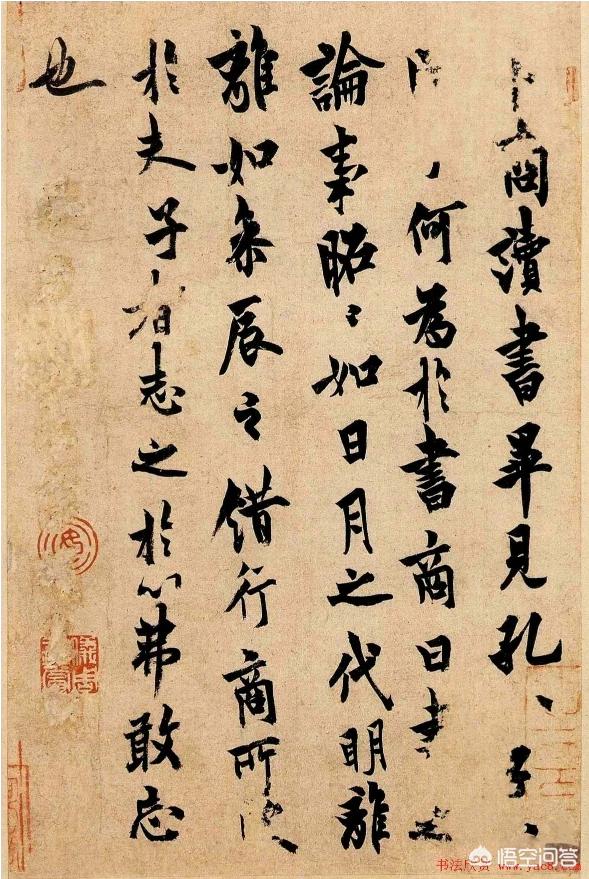 卜商讀書畢見孔〻子〻
何為於書商曰書之
論事昭〻如日月之代明離
離如參辰之錯行商所受
於夫子者志之於心弗敢忘
也
书法欣赏 www.yac8.com
悟空问答